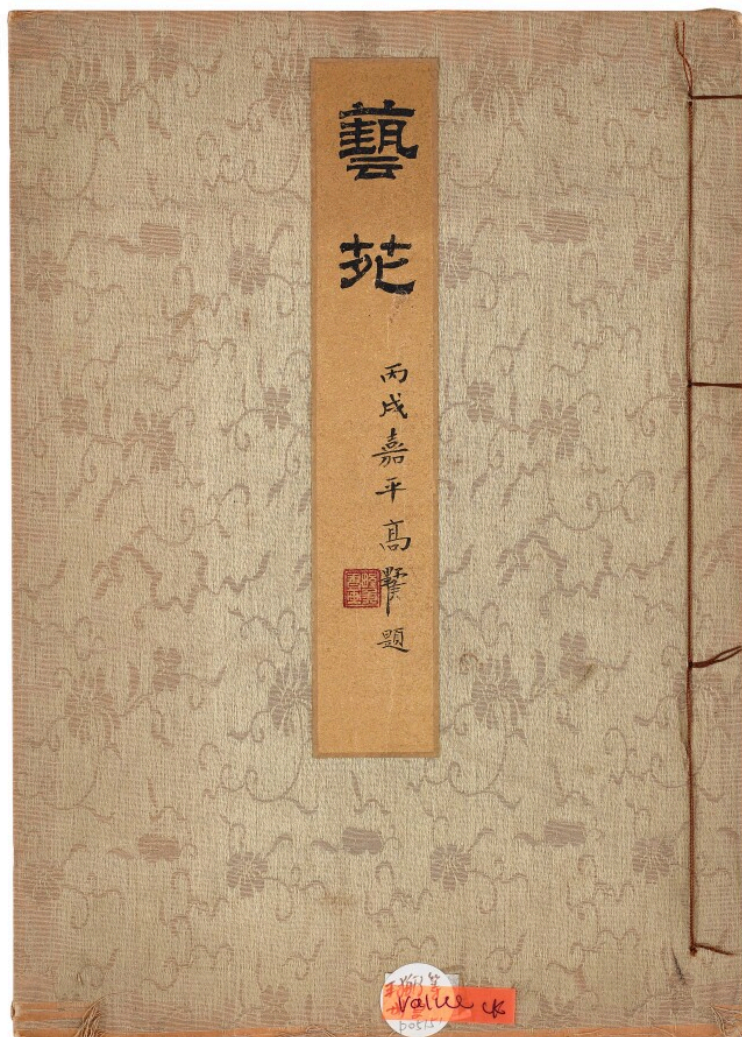 藝苑
丙戌嘉平高 題
Value ck